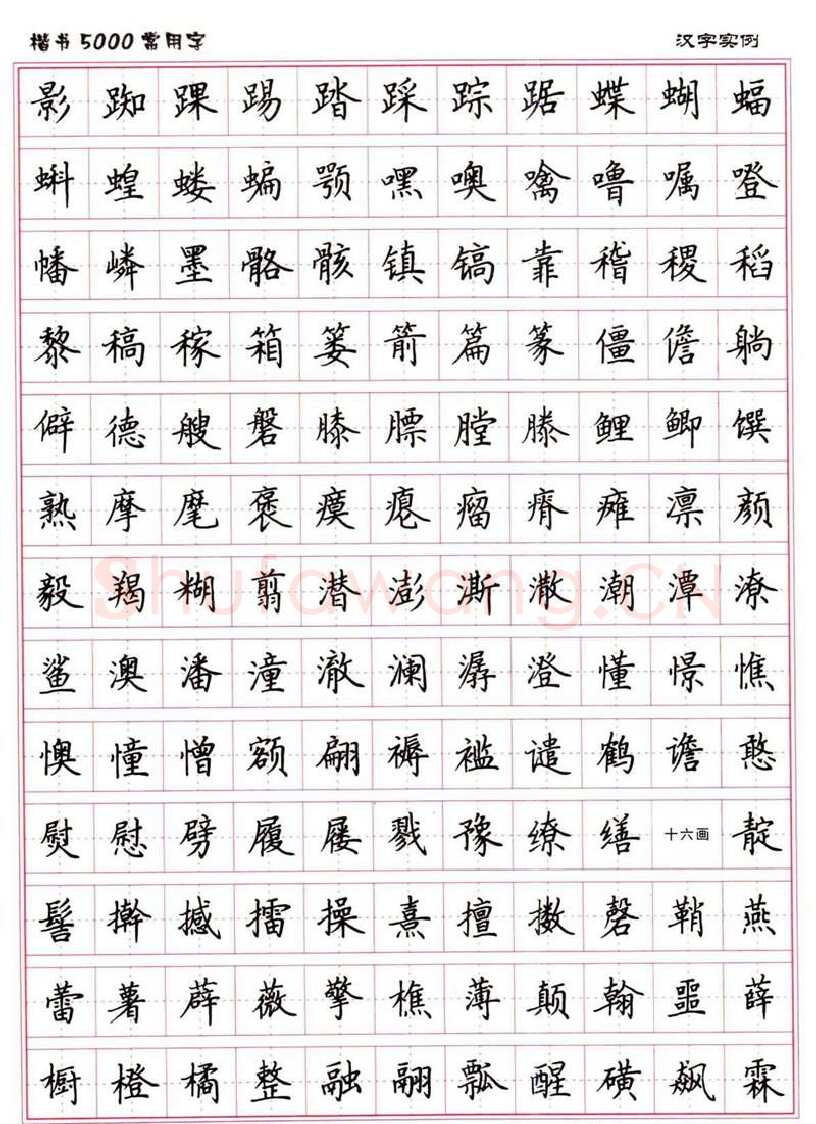 楷书5000常用字 汉字实例
影 踟 踝 踢 踏 踩 踪 踞 蝶 蝴 蝠
蝌 蝗 蝼 蝙 颚 嘿 噢 噙 噜 嘱 噔
幡 嶙 墨 骼 骸 镇 镐 靠 稽 稷 稻
黎 稿 稼 箱 篓 箭 篇 篆 僵 儋 躺
僻 德 艘 磐 膝 膘 膛 滕 鲤 鲫 馔
熟 摩 麾 褒 瘼 瘪 瘤 瘠 瘫 凛 颜
毅 羯 糊 翦 潜 澎 澌 潵 潮 潭 潦
鲨 澳 潘 潼 澈 澜 潺 澄 懂 憬 憔
懊 憧 憎 额 翩 褥 褴 谴 鹤 谵 憨
熨 慰 劈 履 屦 戮 豫 缭 缮 十六画 靛
髻 擀 撼 擂 操 熹 擅 擞 磬 鞘 燕
蕾 薯 薜 薇 擎 樵 薄 颠 翰 噩 薛
橱 橙 橘 整 融 翮 瓢 醒 磺 飙 霖
Shufawang.CN